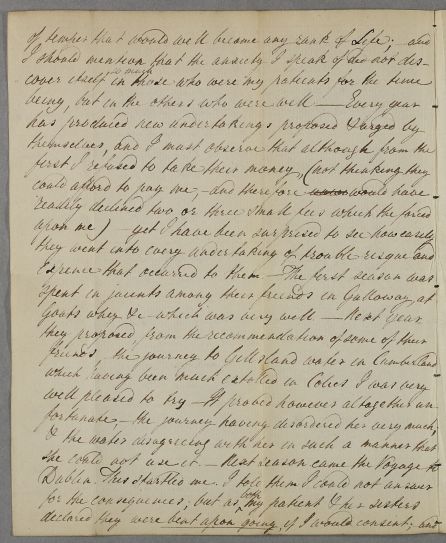 of temper that would well become any rank of Life; and
I should mention that the anxiety I speak of did not dis-
cover itself so much in those who were my patients for the time
being, but in the others who were well — Every year
has produced new undertakings proposed & urged by
themselves, and I must observe that although from the
first I refused to take their money, (not thinking they
could afford to pay me, – and therefore would have
readily declined two or three small fees which they forced
upon me) – yet I have been surprised to see how easily
they went into every undertaking of trouble risque and
Expence that occurred to them – The first season was
Spent in jaunts among their friends in Galloway, at
Goats whey &c – which was very well – Next Year
they proposed, from the recommendation of some of their
friends, the journey to Gillsland water in Cumberland
which having been much extolled in Colics I was very
well pleased to try – It proved however altogether un-
fortunate, – the journey having disordered her very much,
& the water disagreeing with her in such a manner that
She could not use it. – Next season came the Voyage to
Dublin. This startled me. I told them I could not answer
for the consequences; but as both my patient & her Sisters
declared they were bent upon going, if I would consent; and